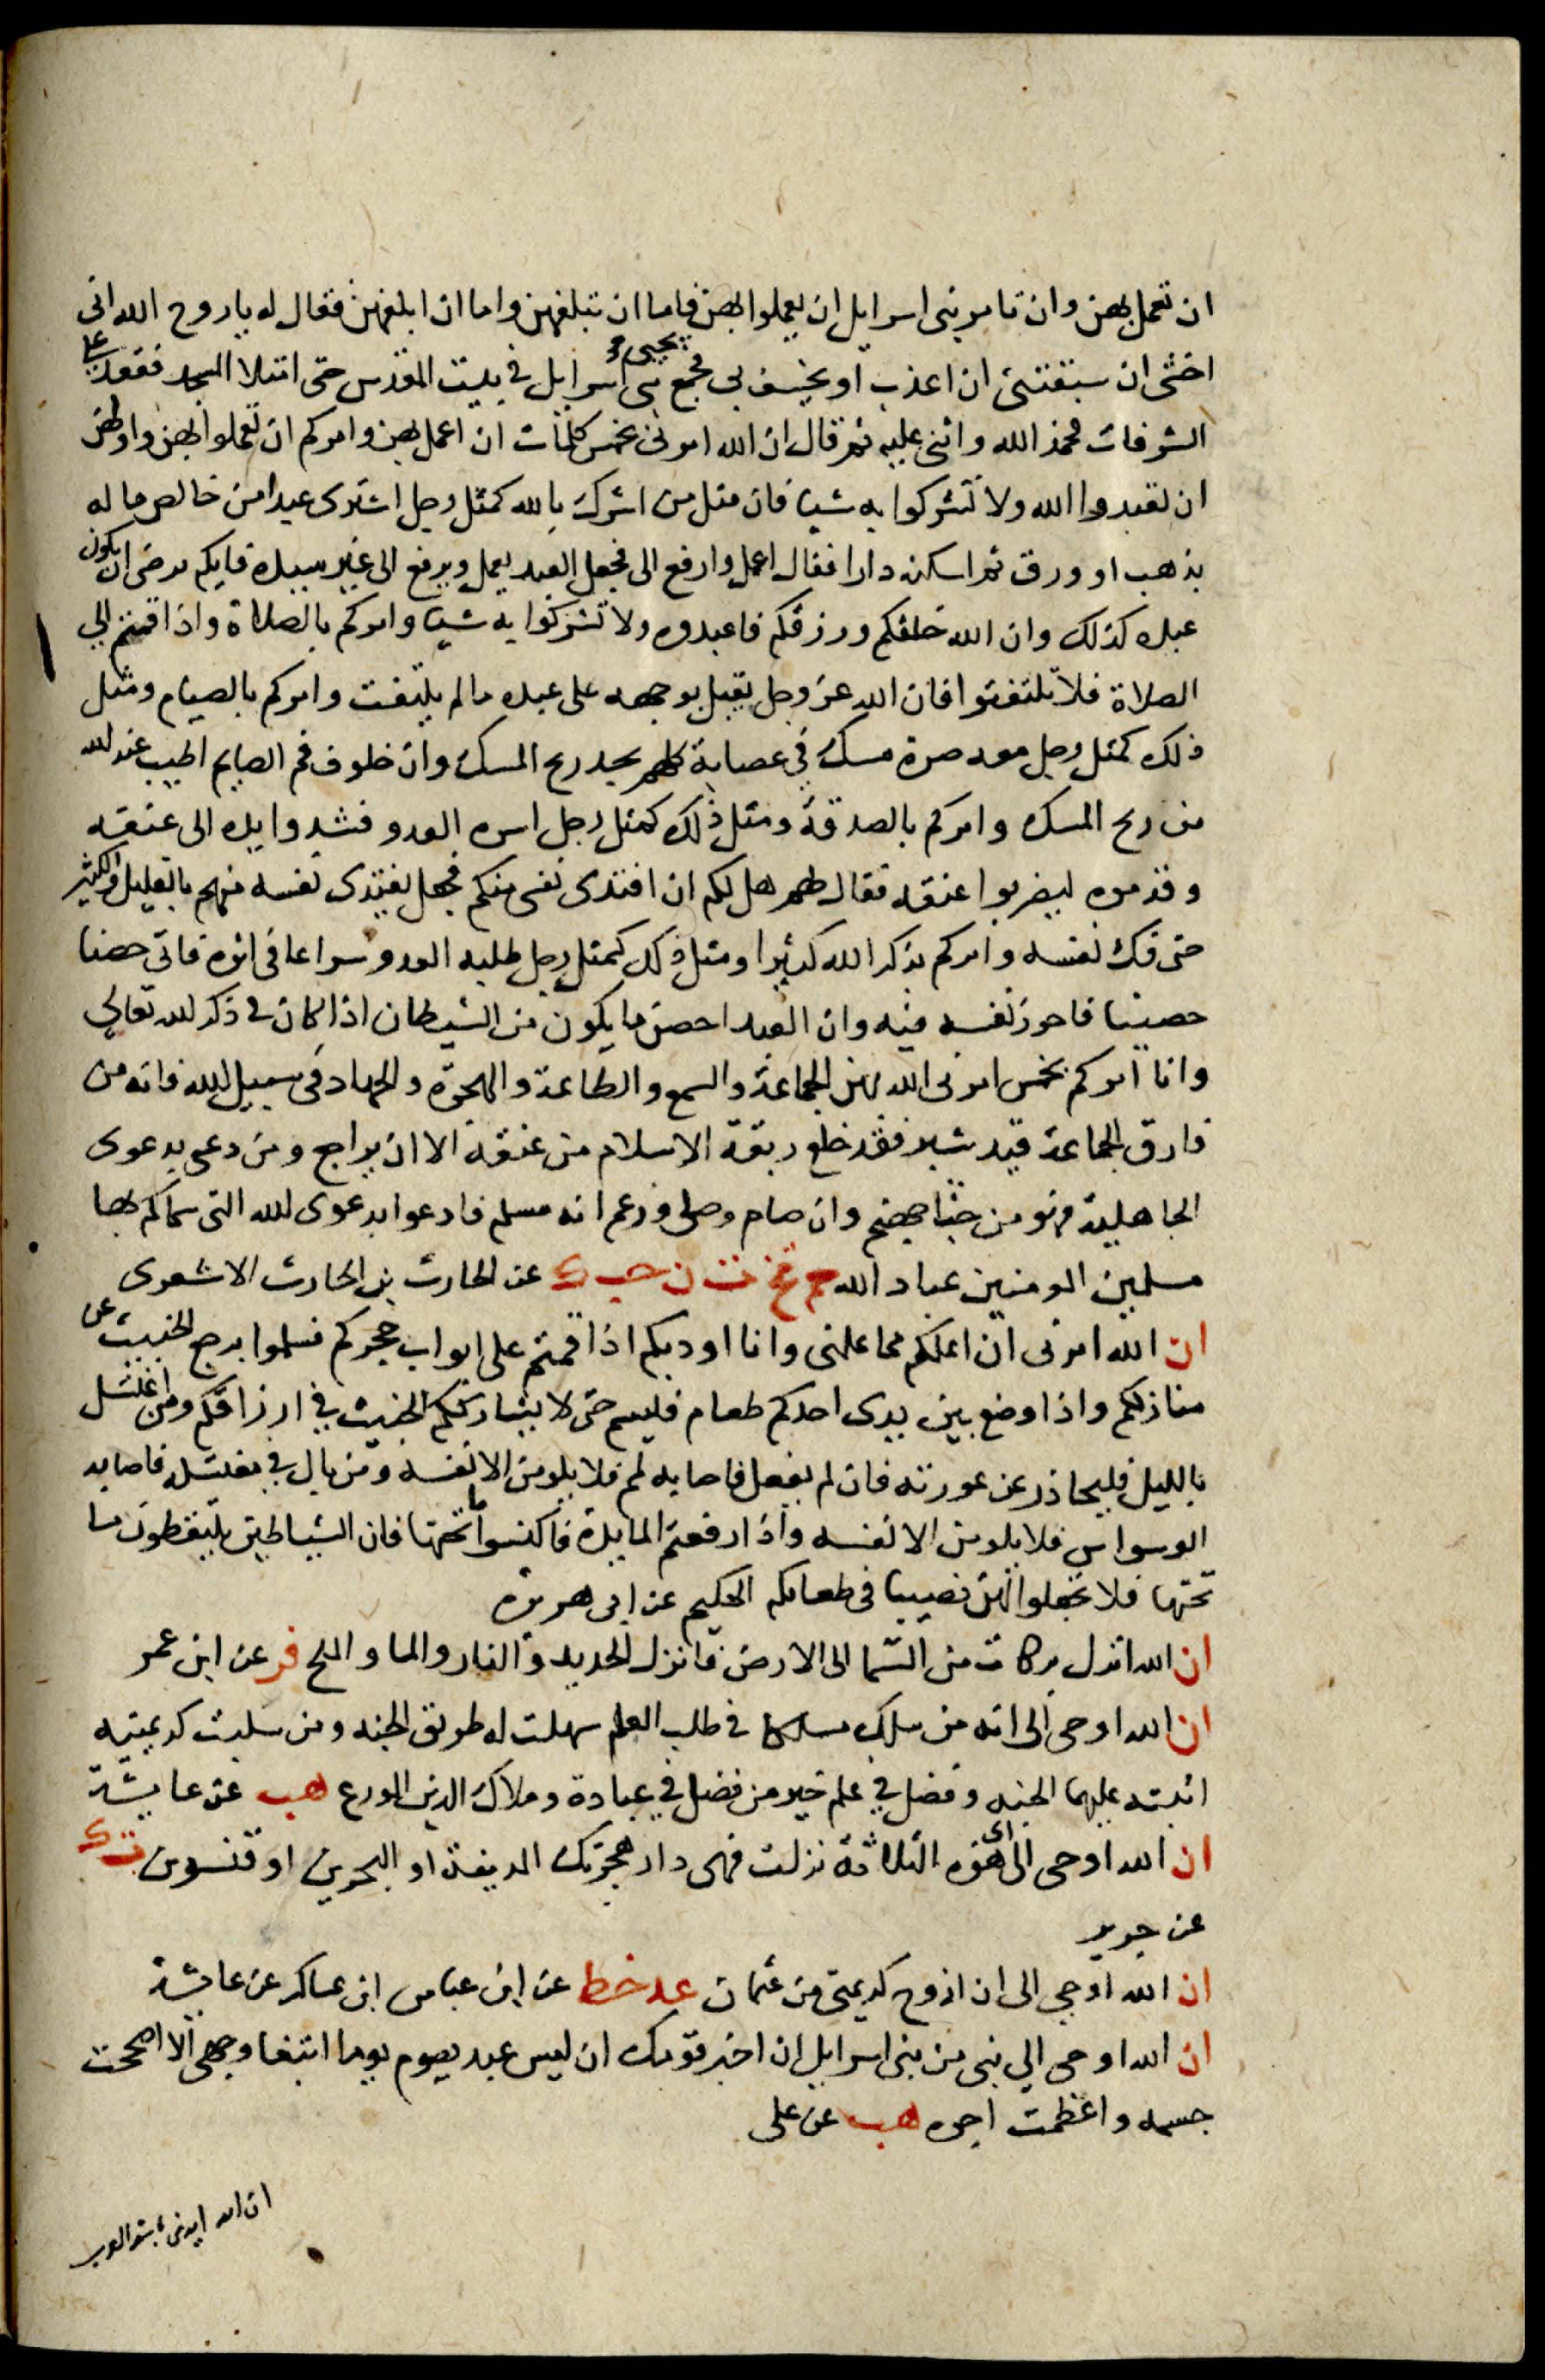 ان تعمل بهن وان تامر بنى اسرايل ان يعملوا بهن فاما ان تبلغهن واما ان ابلغهن فقال له يا روح الله انى
اخشى ان سبقتنى ان اعذب او يخسف بى فجمع يحيى بنى اسرايل فى بيت المقدس حتى امتلا المسجد فقعد على
الشرفات فحمد الله واثنى عليه ثم قال ان الله امرنى بخمس كلمات ان اعمل بهن وامركم ان تعملوا بهن واولهن
ان تعبدوا الله ولا تشركوا به شيا فان مثل من اشرك بالله كمثل رجل اشترى عبدا من خالص ماله
بذهب او ورق ثم اسكنه دارا فقال اعمل وارفع الى فجعل العبد يعمل ويرفع الى غير سيده فايكم يرضى ان يكون
عبده كذلك وان الله خلقكم ورزقكم فاعبدوه ولا تشركوا به شيا وامركم بالصلاة واذا قمتم الى
الصلاة فلا تلتفتوا فان الله عز وجل يقبل بوجهه على عبده مالم يلتفت وامركم بالصيام ومثل
ذلك كمثل رجل معه صرة مسك فى عصابة كلهم يجد ريح المسك وان خلوف فم الصايم اطيب عند الله
من ريح المسك وامركم بالصدقة ومثل ذلك كمثل رجل اسره العدو فشدوا يده الى عنقه
وقدموه ليضربوا عنقه فقال لهم هل لكم ان افتدى نفسى منكم فجعل يفتدى نفسه منهم بالقليل والكثير
حتى فك نفسه وامركم بذكر الله كثيرا ومثل ذلك كمثل رجل طلبه العدو سراعا فى اثره فاتى حصنا
حصينا فاحرز نفسه فيه وان العبد احصن ما يكون من الشيطان اذا كان فى ذكر الله تعالى
وانا امركم بخمس امرنى الله بهن الجماعة والسمع والطاعة والهجرة والجهاد فى سبيل الله فانه من
فارق الجماعة قيد شبر فقد خلع ربقة الاسلام من عنقه الا ان يراجع ومن دعى بدعوى
الجاهلية فهو من جثا جهنم وان صام وصلى وزعم انه مسلم فادعوا بدعوى الله التى سماكم بها
مسلمين المومنين عباد الله حم تخ ت ن حب ك عن الحارث بن الحارث الاشعرى
ان الله امرنى ان اعلمكم مما علمنى وانا اودبكم اذا قمتم على ابواب حجركم فسلموا يرجع الخبيث عن
منازلكم واذا وضع بين يدى احدكم طعام فليسم حتى لا يشارككم الخبيث فى ارزاقكم ومن اغتسل
بالليل فليحاذر عن عورته فان لم يفعل فاصابه لم فلا يلومن الا نفسه ومن بال فى مغتسله فاصابه
الوسواس فلا يلومن الا نفسه واذا رفعتم المايدة فاكنسوا ما تحتها فان الشياطين يلتقطون ما
تحتها فلا تجعلوا لهن نصيبا فى طعامكم الحكيم عن ابى هريرة
ان الله انزل بركات من السما الى الارض فانزل الحديد والنار والما والملح فر عن ابن عمر
ان الله اوحى الى انه من سلك مسلكا فى طلب العلم سهلت له طريق الجنه ومن سلبت كريمتيه
اثبته عليهما الجنه وفضل فى علم خير من فضل فى عبادة وملاك الدين الورع هب عن عايشة
ان الله اوحى الى اى هوه الثلاثة نزلت فهى دار هجرتك المدينة او البحرين او قنسرين ت ك
عن جرير
ان الله اوحى الى ان ازوج كريمتى من عثمان عد خط عن ابن عباس ابن عساكر عن عايشة
ان الله اوحى الى نبى من بنى اسرايل ان اخبر قومك ان ليس عبد يصوم يوما ابتغا وجهى الا اصححت
جسمه واعظمت اجره هب عن على
ان الله ايدنى